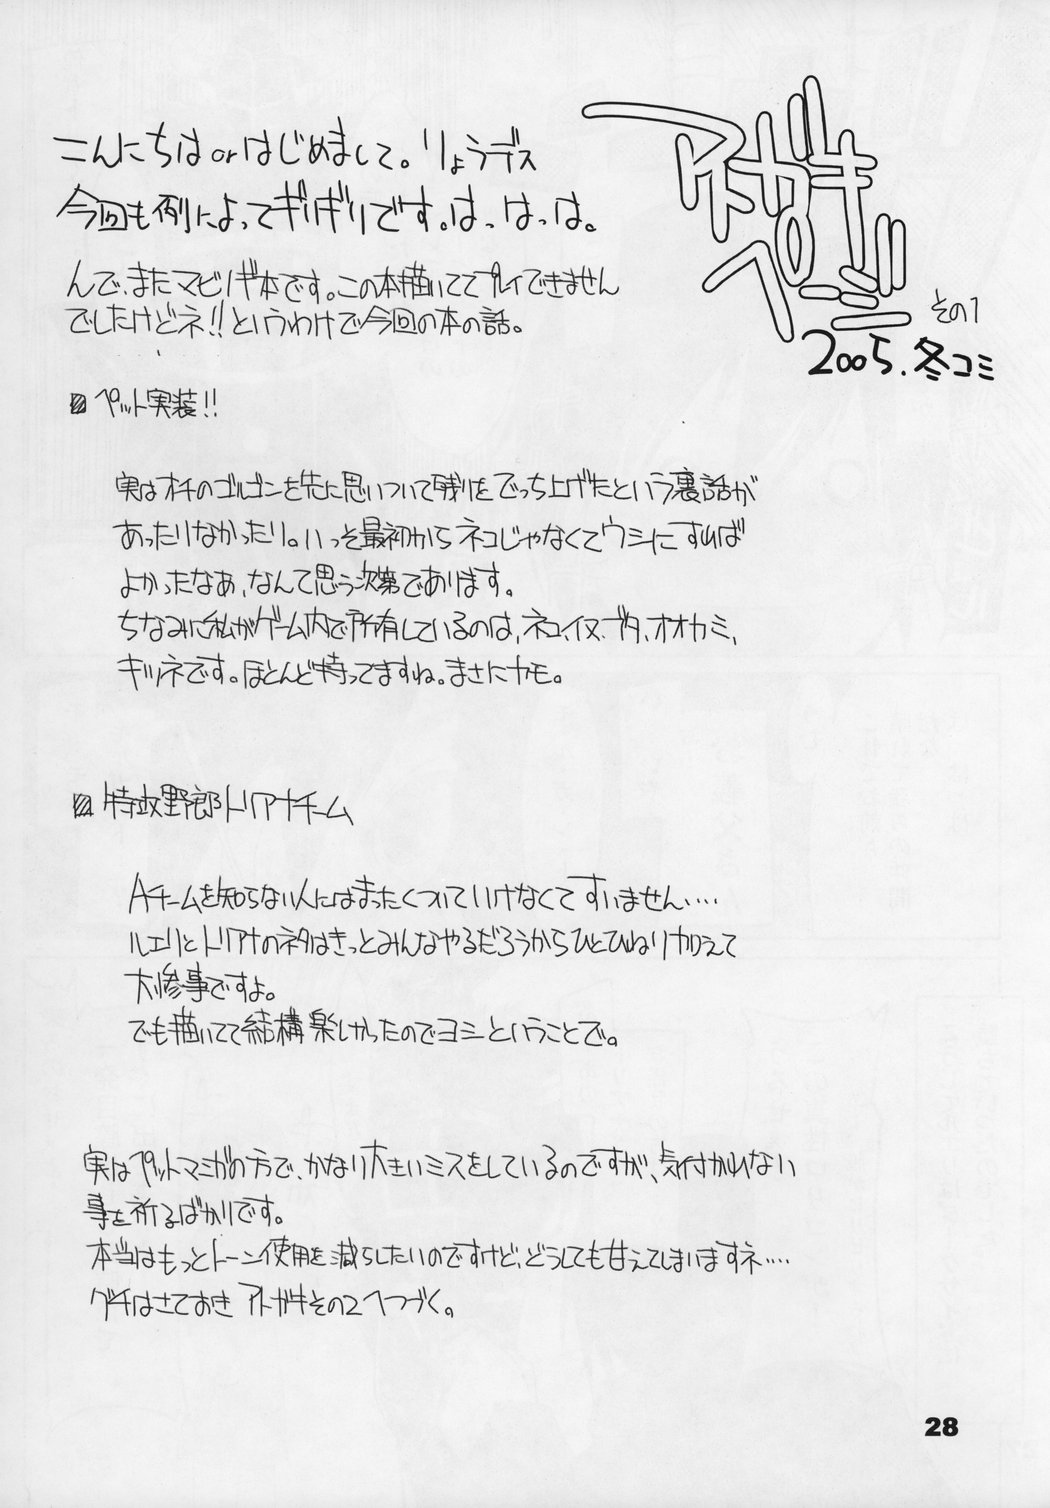 アトガキ
ページ
その1
2005.冬コミ
こんにちは or はじめまして。りょうデス
今回も例によってギリギリです。はっはっは。
んで、またマビノギ本です。この本描いててプレイできません
でしたけどネ!!というわけで今回の本の話。
ペット実装!!
実はオチのゴルゴンを先に思いついて残りをでっち上げたという裏話が
あったりなかったり。いっそ最初からネコじゃなくてウシにすれば
よかったなぁ、なんて思う次第であります。
ちなみに私がゲーム内で所有しているのは、ネコ、イヌ、ブタ、オオカミ、
キツネです。ほとんど持ってますね。まさにカモ。
特攻野郎トリアナチーム
Aチームを知らない人にはまったくついていけなくてすいません‥‥
ルエリとトリアナのネタはきっとみんなやるだろうからひとひねり加えて
大惨事ですよ。
でも描いてて結構楽しかったのでヨシということで。
実はペットマンガの方で、かなり大きいミスをしているのですが、気付かれない
事を祈るばかりです。
本当はもっとトーン使用を減らしたいのですけど、どうしても甘えてしまいますネ‥‥
グチはさておき アトガキその2へつづく。
28